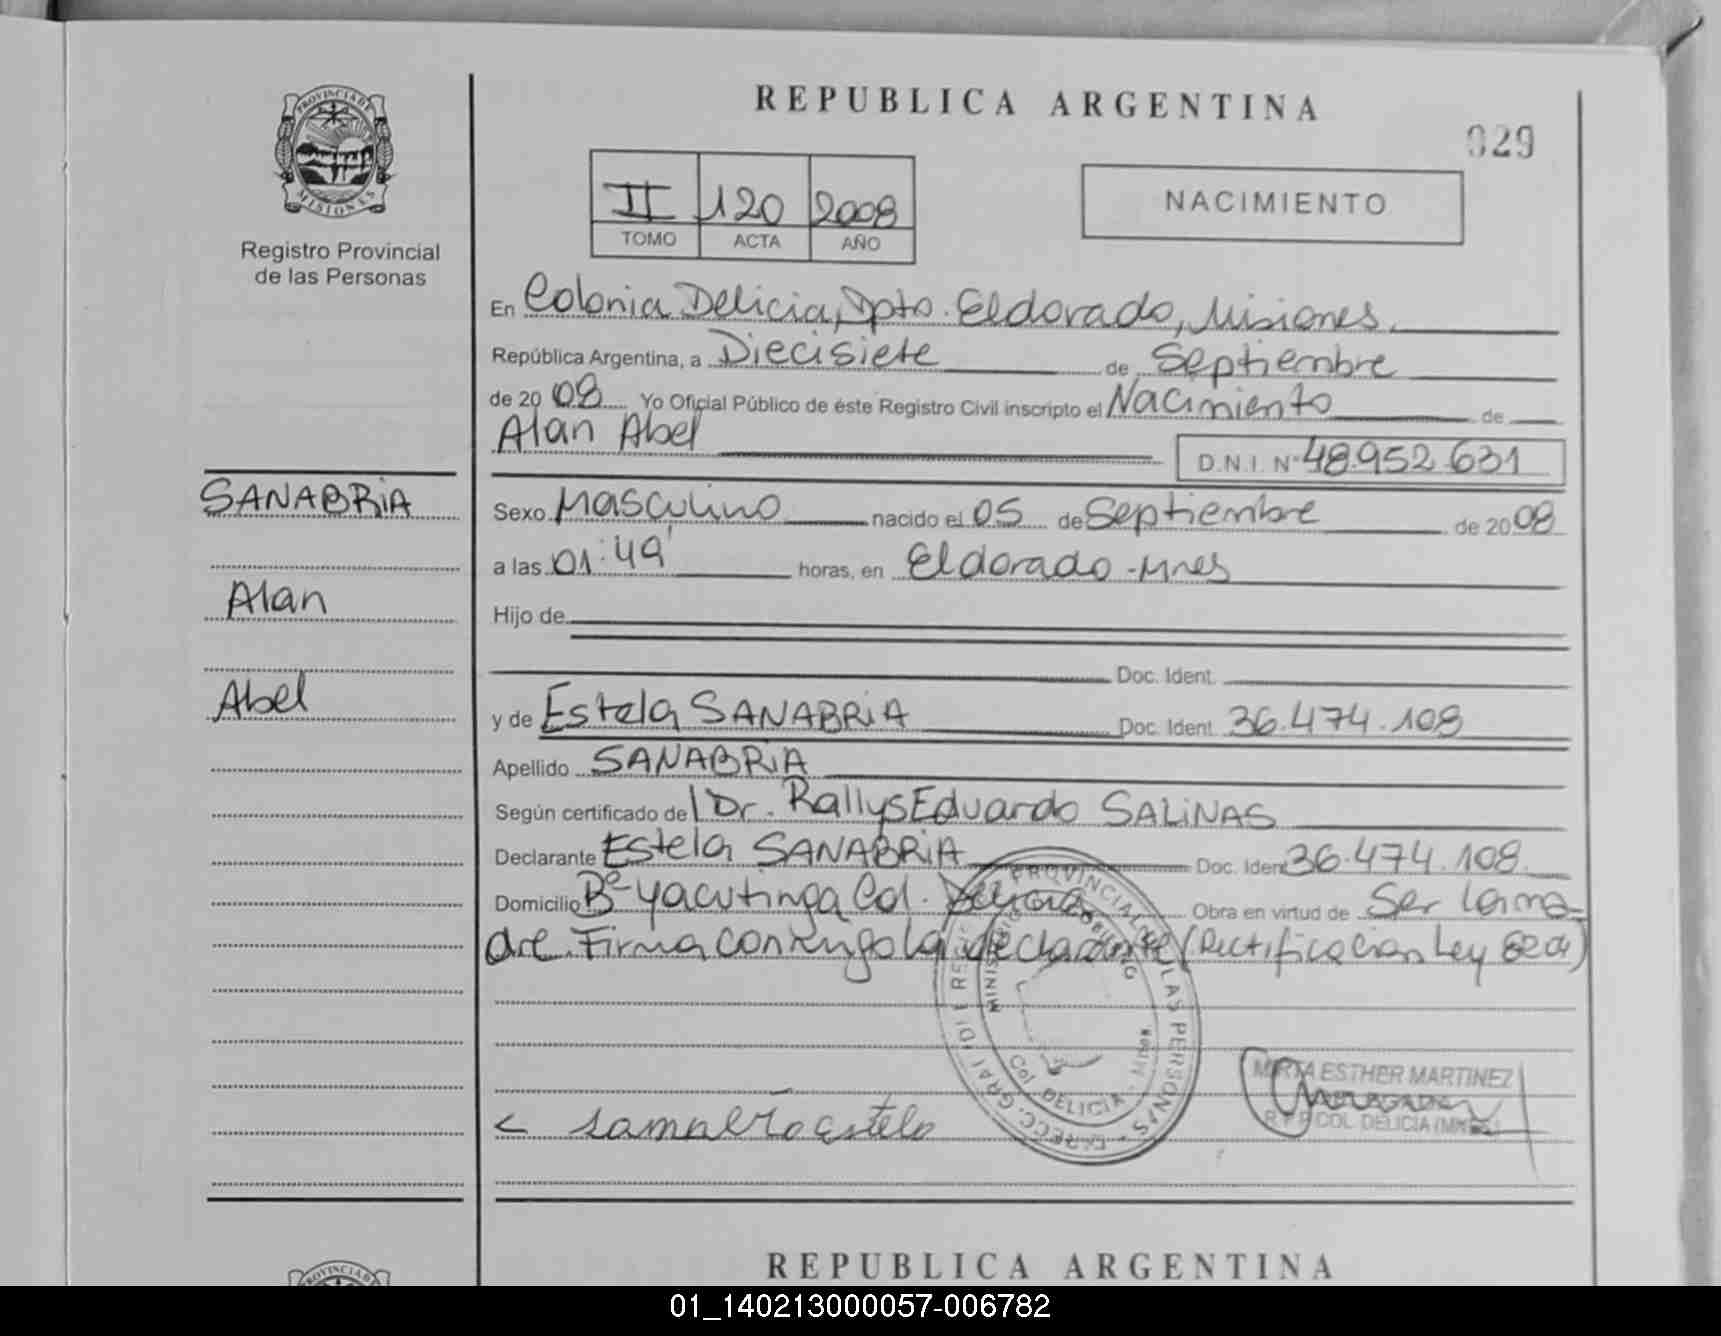 REPUBLICA ARGENTINA
029
PROVINCIA DE
MISIONES
Registro Provincial
de las Personas
II 120 2008
TOMO ACTA AÑO
NACIMIENTO
En Colonia Delicia, Dpto. Eldorado, Misiones.
República Argentina, a Diecisiete de Septiembre
de 2008 Yo Oficial Público de éste Registro Civil inscripto el Nacimiento de
Alan Abel D.N.I. Nº 48.952.631
SANABRIA
Alan
Abel
Sexo Masculino nacido el 05 de Septiembre de 2008
a las 01:49' horas, en Eldorado - Mnes
Hijo de
Doc. Ident.
y de Estela SANABRIA Doc. Ident. 36.474.108
Apellido SANABRIA
Según certificado del Dr. Rallys Eduardo SALINAS
Declarante Estela SANABRIA Doc. Ident 36.474.108.
Domicilio Bº Yacutinga Col. Delicia Obra en virtud de Ser la ma-
dre. Firma conmigo la declarante (Rectificación Ley
PROVINCIAL DE LAS PERSONAS
Col. DELICIA - Mnes.
MIRTA ESTHER MARTINEZ
R.P.P. COL. DELICIA (MNES.)
REPUBLICA ARGENTINA
PROVINCIA DE
01_140213000057-006782